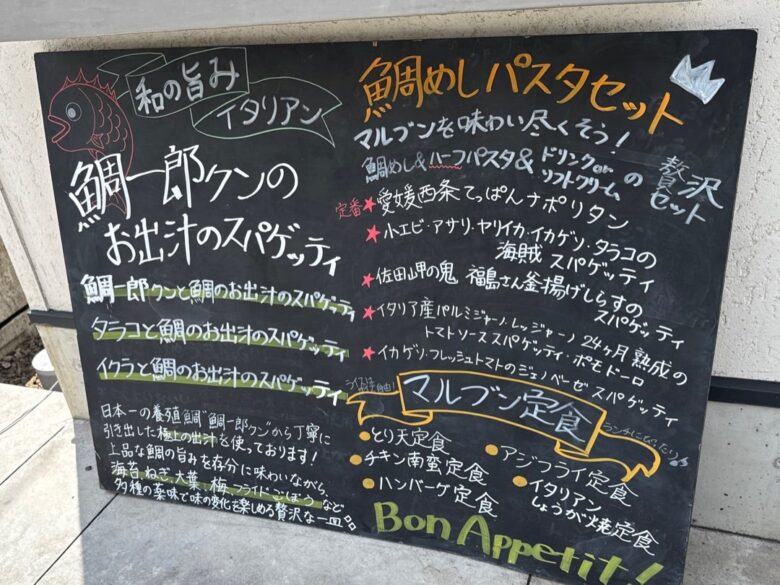 和の旨み
イタリアン
鯛一郎クンの
お出汁のスパゲッティ
鯛一郎クンと鯛のお出汁のスパゲッティ
タラコと鯛のお出汁のスパゲッティ
イクラと鯛のお出汁のスパゲッティ
日本一の養殖鯛"鯛一郎クン"から丁寧に
引き出した極上の出汁を使っております!
上品な鯛の旨みを存分に味わいながら、
海苔、ねぎ、大葉、梅、フライドごぼうなど
多種の薬味で味の変化を楽しめる贅沢な一皿品
鯛めしパスタセット
マルブンを味わい尽くそう!
鯛めし&ハーフパスタ&ドリンクorソフトクリームの贅沢セット
定番★愛媛西条てっぱんナポリタン
★小エビ・アサリ・ヤリイカ・イカゲソ・タラコの
海賊スパゲッティ
★佐田岬の鬼 福島さん釜揚げしらすの
スパゲッティ
★イタリア産パルミジャーノ・レッジャーノ24ヶ月熟成の
トマトソーススパゲッティ・ポモドーロ
★イカゲソ・フレッシュトマトのジェノベーゼ スパゲッティ
マルブン定食
ランチにぴったり♪
●とり天定食
●チキン南蛮定食
●ハンバーグ定食
●アジフライ定食
●イタリアン
しょうが焼定食
Bon Appetit!